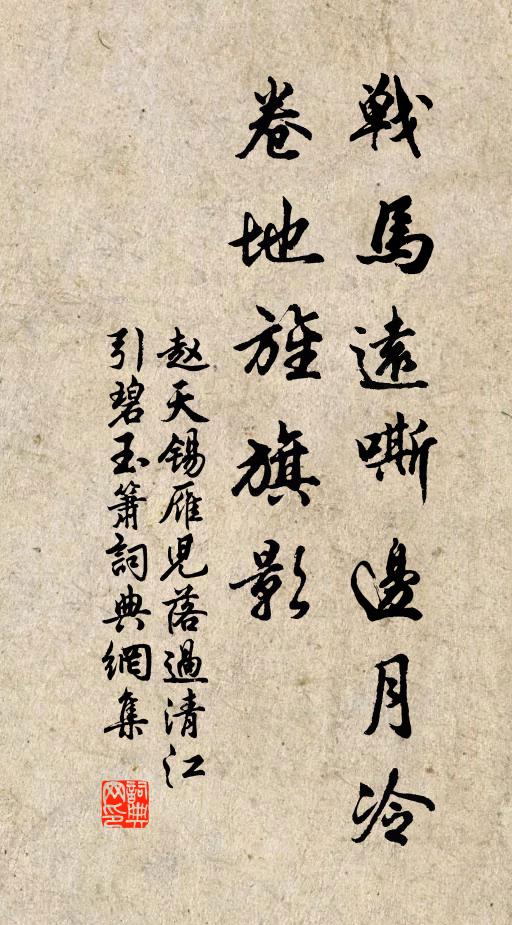 戦馬遠嘶邊月冷
卷地旌旗影
赵天锡雁児落過清江
引碧玉箫詞典網集
詞典
网印